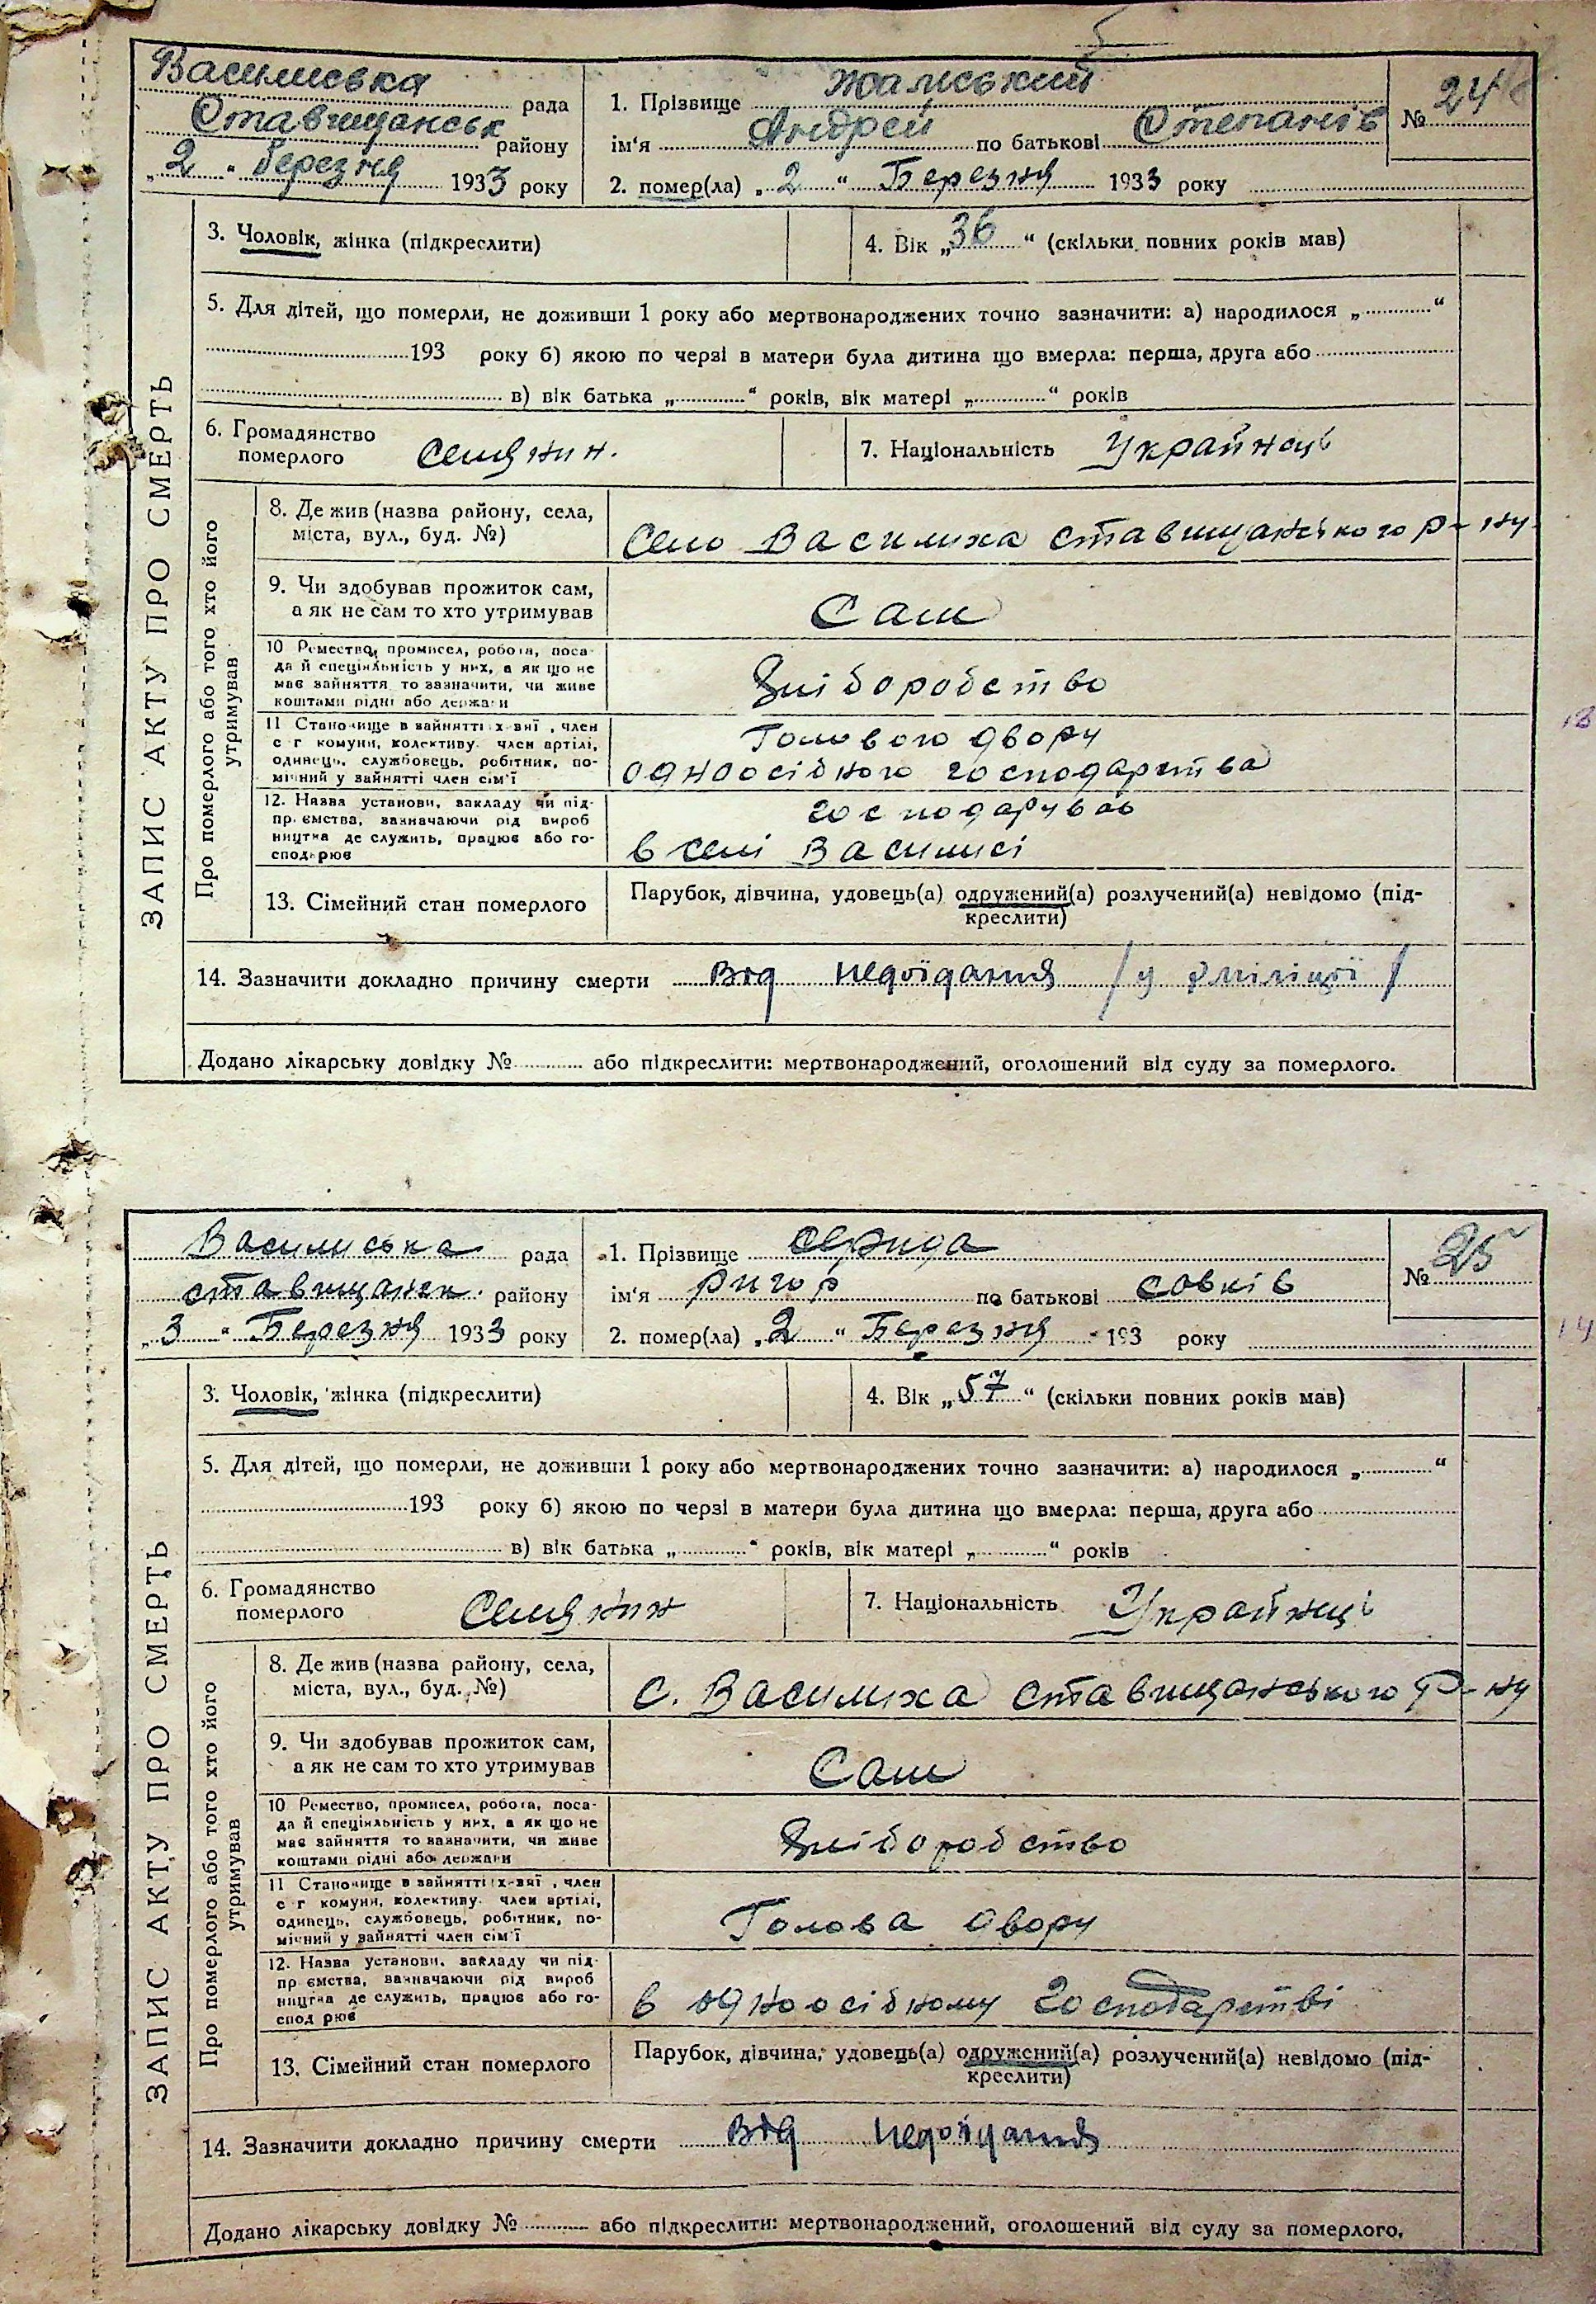 ЗАПИС АКТУ ПРО СМЕРТЬ
Василиська рада
Ставищанськ району
„2“ березня 1933 року
1. Прізвище
ім‘я Андрей по батькові Степанів
№ 24
2. помер(ла) „2“ Березня 1933 року
3. Чоловік, жінка (підкреслити)
4. Вік „36“ (скільки повних років мав)
5. Для дітей, що померли, не доживши 1 року або мертвонароджених точно зазначити: а) народилося „ “
193 року б) якою по черзі в матери була дитина що вмерла: перша, друга або
в) вік батька „ “ років, вік матері „ “ років
6. Громадянство
померлого селянин.
7. Національність Українці
Про померлого або того хто його
утримував
8. Де жив (назва району, села,
міста, вул., буд. №)
село Василиха ставищанського р-ну.
9. Чи здобував прожиток сам,
а як не сам то хто утримував
Сам
10 Ремество, промисел, робота, поса-
да й спеціяльність у них, а як що не
має зайняття то зазначити, чи живе
коштами рідні або держави
Хліборобство
11 Становище в зайнятті х-вяї, член
с г комуни, колективу. член артілі,
одинець, службовець, робітник, по-
мічний у зайнятті член сім‘ї
Головою двору
одноосібного господарства
12. Назва установи, закладу чи під-
приємства, зазначаючи рід вироб
ництва де служить, працює або го-
сподарює
господарував
в селі Василисі
13. Сімейний стан померлого
Парубок, дівчина, удовець(а) одружений(а) розлучений(а) невідомо (під-
креслити)
14. Зазначити докладно причину смерти Від недоїдання /у міліції/
Додано лікарську довідку № або підкреслити: мертвонароджений, оголошений від суду за померлого.
ЗАПИС АКТУ ПРО СМЕРТЬ
Василиська рада
ставищанск. району
„3“ Березня 1933 року
1. Прізвище Середа
ім‘я Ригор по батькові Совків
№ 25
2. помер(ла) „2“ Березня 193 року
3. Чоловік, жінка (підкреслити)
4. Вік „57“ (скільки повних років мав)
5. Для дітей, що померли, не доживши 1 року або мертвонароджених точно зазначити: а) народилося „ “
193 року б) якою по черзі в матери була дитина що вмерла: перша, друга або
в) вік батька „ “ років, вік матері „ “ років
6. Громадянство
померлого Селянин
7. Національність Українці
Про померлого або того хто його
утримував
8. Де жив (назва району, села,
міста, вул., буд. №)
с. Василиха ставищанського р-ну
9. Чи здобував прожиток сам,
а як не сам то хто утримував
Сам
10 Ремество, промисел, робота, поса-
да й спеціяльність у них, а як що не
має зайняття то зазначити, чи живе
коштами рідні або держави
Хліборобство
11 Становище в зайнятті х-вяї, член
с г комуни, колективу. член артілі,
одинець, службовець, робітник, по-
мічний у зайнятті член сім‘ї
Голова двору
12. Назва установи, закладу чи під-
приємства, зазначаючи рід вироб
ництва де служить, працює або го-
сподарює
в одноосібному господарстві
13. Сімейний стан померлого
Парубок, дівчина, удовець(а) одружений(а) розлучений(а) невідомо (під-
креслити)
14. Зазначити докладно причину смерти Від недоїдання
Додано лікарську довідку № або підкреслити: мертвонароджений, оголошений від суду за померлого.